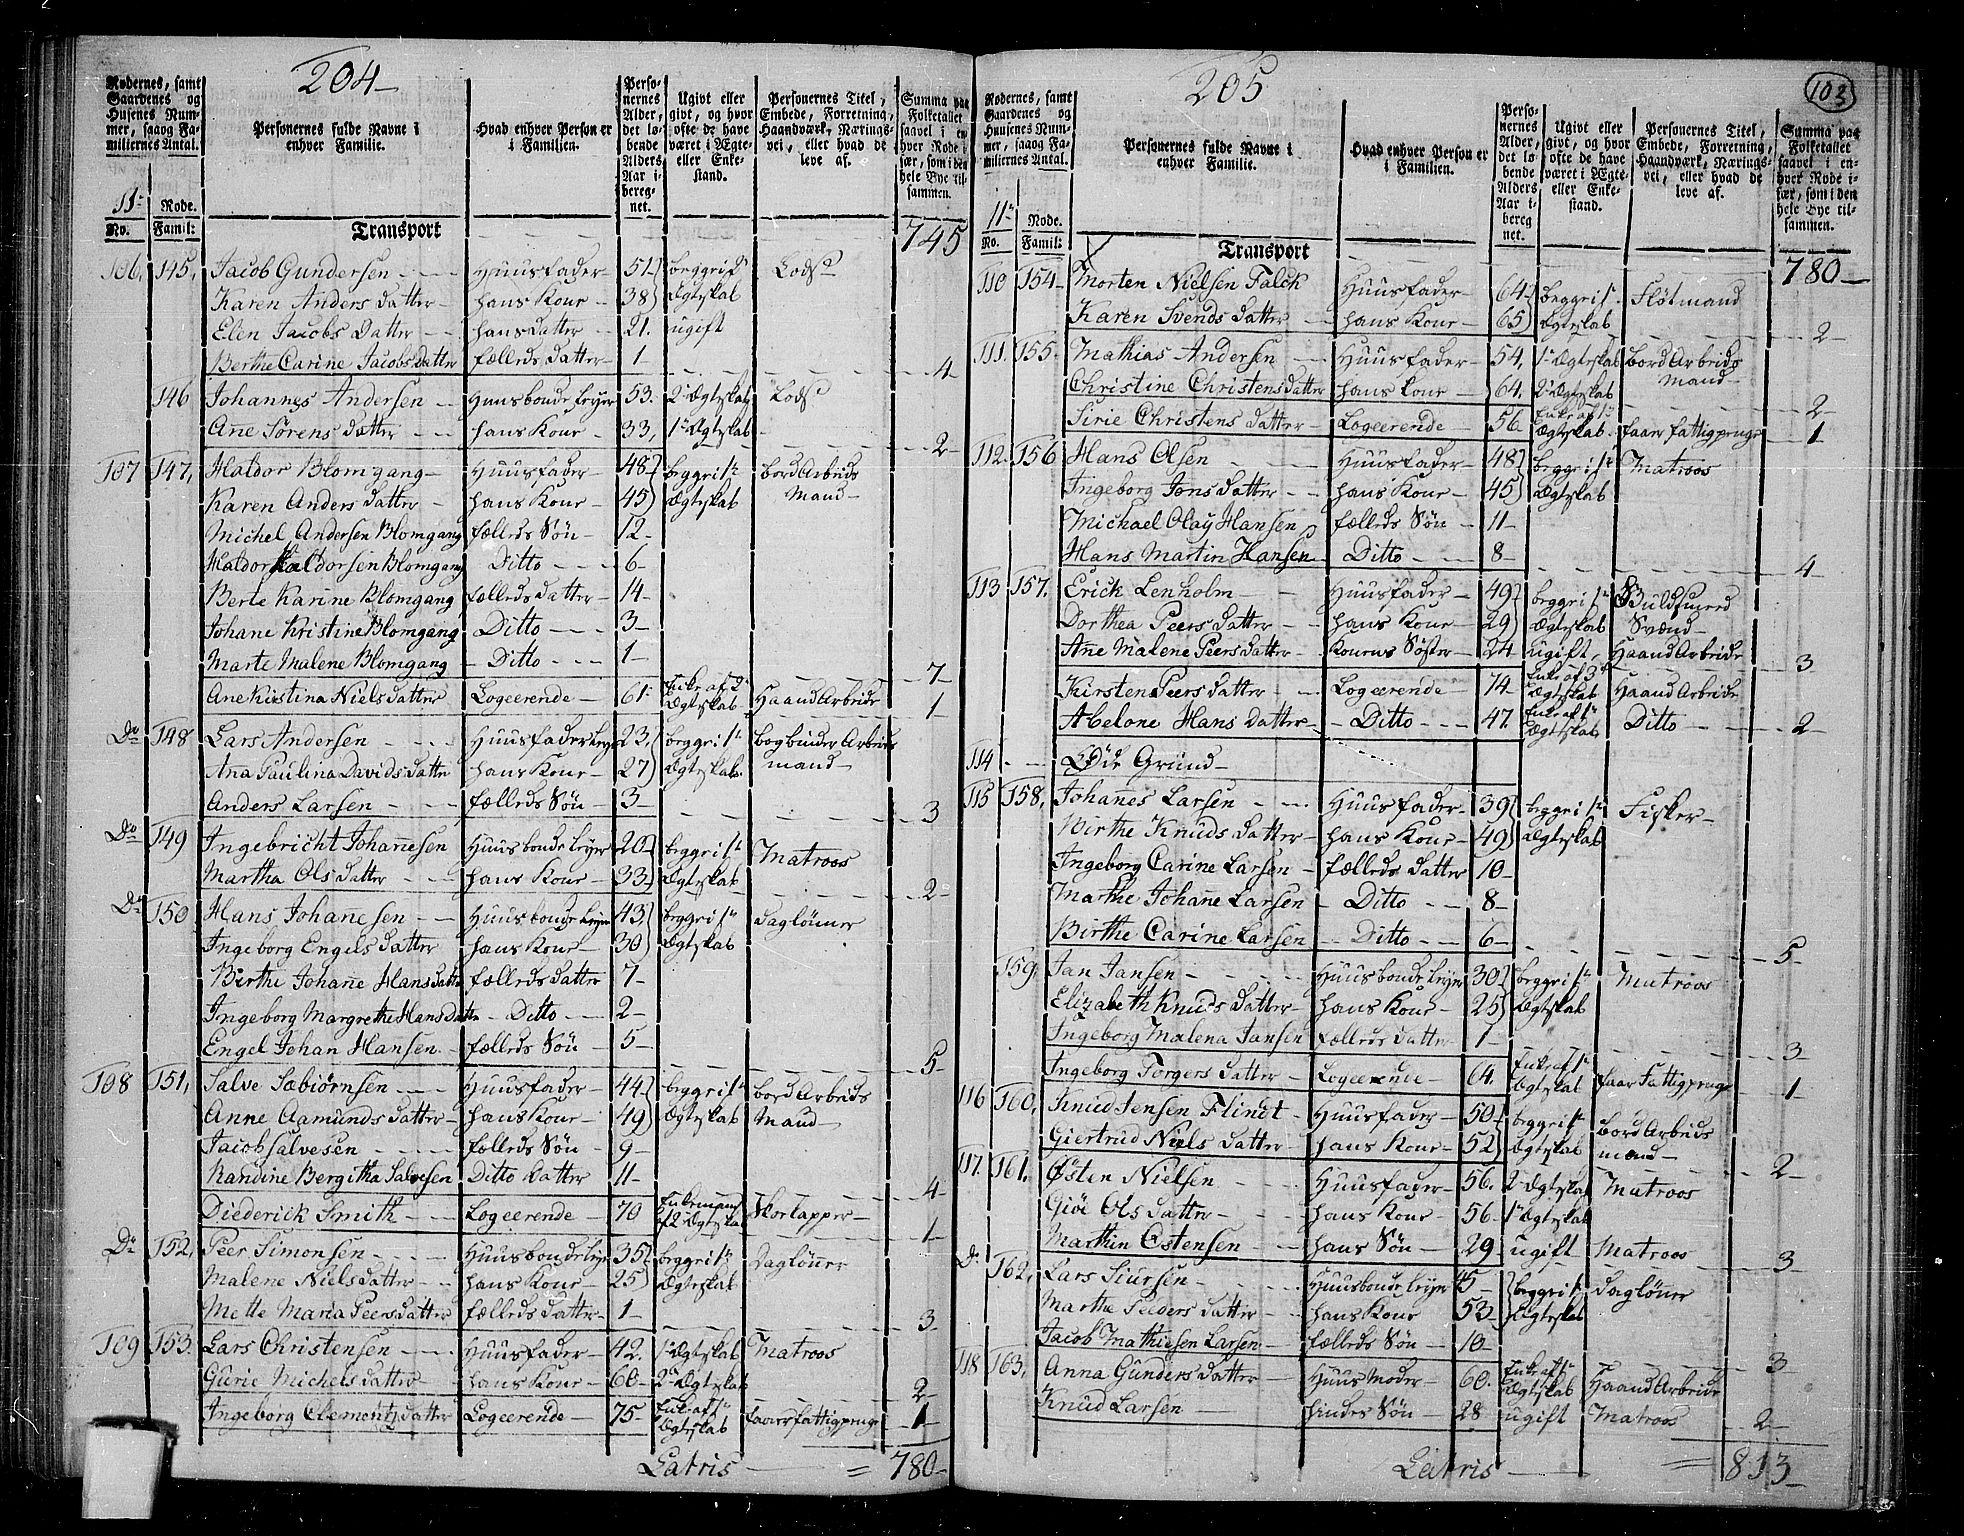 204
Rodernes, samt Gaardenes og Husenes Nummer, saaog Familiernes Antal.
Personernes fulde Navne i enhver Familie.
Hvad enhver Person er i Familien.
Personernes Alder, det løbende Alders Aar iberegnet.
Ugivt eller givt, og hvor ofte de have været i Ægte- eller Enkestand.
Personernes Titel, Embede, Forretning, Haandværk, Næringsvei, eller hvad de leve af.
Summa paa Folketallet saavel i enhver Rode især, som i den hele Bye tilsammen.
11te Rode.
No. Famil:
Transport 745
106, 145, Jacob Gundersen Huusfader 51 begge i 1ste Lods
Karen Anders datter hans Kone 38 Ægteskab
Elen Jacobs Datter hans datter 21. ugift
Berthe Carine Jacobsdatter fælleds datter 1
4
146 Johannes Andersen Huusbonde leyer 53. 2de Ægteskab Lods
Ane Sørens datter hans Kone 33, 1ste Ægteskab
2
107 147, Haldor Blomgang Huusfader 48 begge i 1ste bord Arbeids
Karen Anders datter hans Kone 45 Ægteskab Mand
Michel Andersen Blomgang fælleds Søn 12
Haldor Haldorsen Blomgang Ditto 6
Berte Karine Blomgang fælleds datter 14
Johane Kristine Blomgang Ditto 3
Marte Malene Blomgang Ditto 1
7
Ane Kirstina Niels datter Logeerende 61 Enke af 2de Ægteskab Haand Arbeide
1
Do 148 Lars Andersen Huusfader leyer 23, begge i 1ste bogbinder Arbeids
Ana Paulina Davids datter hans Kone 27 Ægteskab mand
Anders Larsen fælleds Søn 3
3
Do 149 Ingebricht Johannesen Huusbonde leyer 20 begge i 1ste Matroos
Martha Ols datter hans Kone 33 Ægteskab
2
Do 150 Hans Johanesen Huusbonde leyer 43 begge i 1ste Dagløner
Ingeborg Engels datter hans Kone 30 Ægteskab
Birthe Johane Hansdatter fælleds datter 7
Ingeborg Margrethe Hansdatter Ditto 2
Engel Johan Hansen fælleds Søn 5
5
108 151, Salve Sæbiørnsen Huusfader 44 begge i 1ste bord Arbeids
Anne Aamunds datter hans Kone 49 Ægteskab Mand
Jacob Salvesen fælleds Søn 9
Randine Bergitha Salvesen Ditto datter 11
4
Diederick Smith Logeerende 70 Enkemand af 2 Ægteskab Skorlapper
1
Do 152, Peer Simonsen Huusbonde leyer 35 begge i 1ste Dagløner
Malene Niels datter hans Kone 25 Ægteskab
Mette Maria Peersdatter fælleds datter 1
3
109 153. Lars Christensen Huusfader 42. 1ste Ægteskab Matroos
Gurie Michels datter hans Kone 60 2de Ægteskab
2
Ingeborg Clementz datter Logeerende 75 Enke af 1ste Ægteskab faaer fattigpenge
1
Latris = 780
205
103
Rodernes, samt Gaardenes og Husenes Nummer, saaog Familiernes Antal.
Personernes fulde Navne i enhver Familie.
Hvad enhver Person er i Familien.
Personernes Alder, det løbende Alders Aar iberegnet.
Ugivt eller givt, og hvor ofte de have været i Ægte- eller Enkestand.
Personernes Titel, Embede, Forretning, Haandværk, Næringsvei, eller hvad de leve af.
Summa paa Folketallet saavel i enhver Rode især, som i den hele Bye tilsammen.
11te Rode.
No. Famil:
Transport 780
110 154 Morten Nielsen Falck Huusfader 64 begge i 1. Fløtmand
Karen Svends datter hans Kone 65 Ægteskab
2
111. 155. Mathias Andersen Huusfader 54, 1ste Ægteskab bord Arbeids
Christine Christens datter hans Kone 64, 2de Ægteskab mand
2
Sirie Christens datter Logeerende 56 Enke af 1ste Ægteskab faaer fattigpenge 1
112. 156 Hans Olsen Huusfader 48 begge i 1ste Matroos
Ingeborg Jons datter hans Kone 45 Ægteskab
Michael Olay Hansen fælleds Søn 11
Hans Martin Hansen Ditto 8
4
113 157. Erick Lenholm Huusfader 49 begge i 1ste Guldsmed
Dorthea Peers datter hans Kone 29 Ægteskab Svend
Ane Malene Peers datter Konens Søster 24 ugift, Haand Arbeide
3
Kirsten Peers datter Logeerende 74 Enke af 3de Ægteskab Haand Arbeide
Abelone Hans datter Ditto 47 Enke af 1ste Ægteskab Ditto 2
114 Øde Grund
115 158, Johannes Larsen Huusfader 39 begge i 1ste Fisker
Birthe Knuds datter hans Kone 49 Ægteskab
Ingeborg Carine Larsen fælleds datter 10
Marthe Johane Larsen Ditto 8
Birthe Carine Larsen Ditto 6
5
159. Jan Jansen Huusbonde leyer 30 begge i 1ste Matroos
Elizabeth Knuds datter hans Kone 25 Ægteskab
Ingeborg Malena Jansen fælleds datter 1
3
Ingeborg Torgers datter Logeerende 64. Enke af 1ste Ægteskab faar Fattigpenge
1
116 160, Knud Jensen Flindt Huusfader 50 begge i 1ste bord Arbeids
Giertrud Niels datter hans Kone 52 Ægteskab mand
2
117. 161. Østen Nielsen Huusfader 56. 2de Ægteskab Matroos
Giøe Ols datter hans Kone 56 1ste Ægteskab
Marthin Østensen hans Søn 29 ugift Matroos
3
Do 162, Lars Siursen Huusbonde leyer 45 begge i 1ste Dagløner
Martha Peders datter hans Kone 53 Ægteskab
Jacob Mathiesen Larsen fælleds Søn 10
3
118 163, Anna Gunders datter Huus Moder 60. Enke af 1ste Ægteskab Haand Arbeide
Knud Larsen hindes Søn 28 ugift Matroos
2
Latris = 813